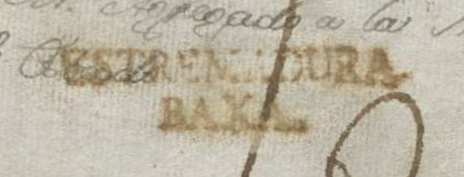 Agregado a la
ESTREMADURA.
BAXA.